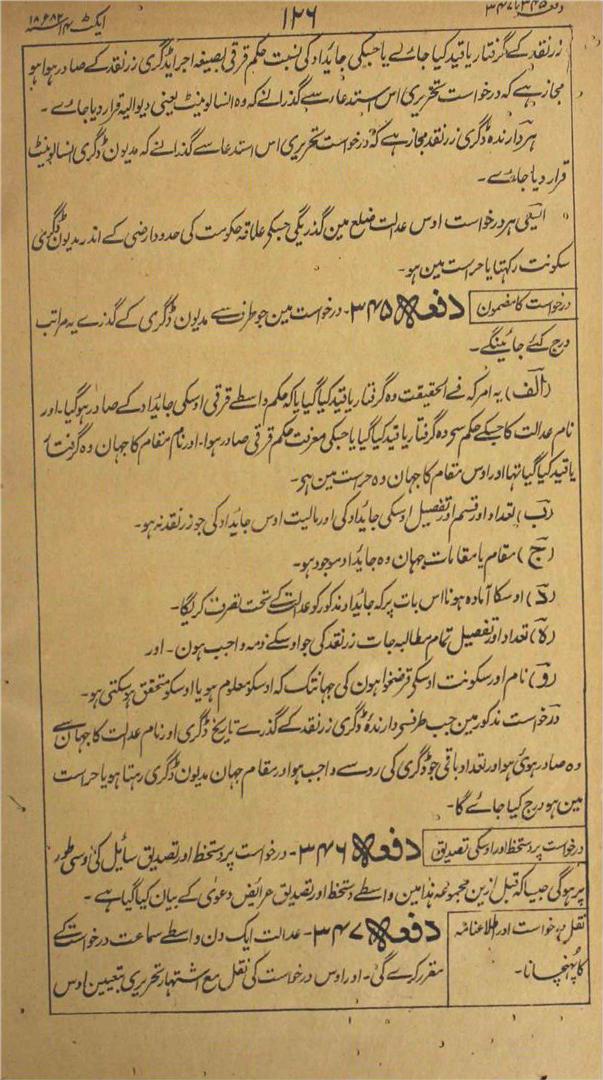 دفعہ ۳۴۵ تا ۳۴۷
۱۲۶
ایکٹ ۱۴ سنہ ۱۸۸۲ء
زر نقد کے گرفتار یا قید کیا جائے یا جسکی جایداد کی نسبت حکم قرقی بصیغہ اجرای ڈگری زر نقد کے صادر ہوا ہو
مجاز ہے کہ درخواست تحریری اس استدعا سے گذرانے کہ وہ انسالونیٹ یعنی دیوالیہ قرار دیا جاے ۔
ہر دارندہ ڈگری زر نقد مجاز ہے کہ درخواست تحریری اس استدعا سے گذرانے کہ مدیون ڈگری انسالونیٹ
قرار دیا جاے ۔
ایسی ہر درخواست اوس عدالت ضلع مین گذریگی جسکی علاقہ حکومت کی حدود ارضی کے اندر مدیون ڈگری
سکونت رکہتا یا حراست مین ہو ۔
درخواست کا مضمون
دفعہ ۳۴۵ ۔ درخواست مین جو طرف سے مدیون ڈگری کے گذرے یہ مراتب
درج کئے جائینگے ۔
(الف) یہ امر کہ فے الحقیقت وہ گرفتار یا قید کیا گیا یا کہ حکم واسطے قرقی اوسکی جایداد کے صادر ہو گیا ۔ اور
نام عدالت کا جسکے حکم سی وہ گرفتار یا قید کیا گیا یا جسکی معرفت حکم قرقی صادر ہوا ۔ اور نام مقام کا جہان وہ گرفتار
یا قید کیا گیا تہا اور اوس مقام کا جہان وہ حراست مین ہو ۔
(ب) تعداد اور قسم اور تفصیل اوسکی جایداد کی اور مالیت اوس جایداد کی جو زر نقد نہ ہو ۔
(ج) مقام یا مقامات جہان وہ جایداد موجود ہو ۔
(د) اوسکا آمادہ ہونا اس بات پر کہ جایداد مذکور کو عدالت کے تحت تصرف کریگا ۔
(ہ) تعداد اور تفصیل تمام مطالبہ جات زر نقد کی جو اوسکے ذمہ واجب ہون ۔ اور
(و) نام اور سکونت اوسکی قرضخواہون کی جہانتک کہ اوسکو معلوم ہو یا اوسکو متحقق ہو سکتی ہو ۔
درخواست مذکور مین جب طرف سے دارندہ ڈگری زر نقد کے گذرے تاریخ ڈگری اور نام عدالت کا جہان سے
وہ صادر ہوئی ہو اور تعداد باقی جو ڈگری کی رو سے واجب ہو اور مقام جہان مدیون ڈگری رہتا ہو یا حراست
مین ہو درج کیا جاے گا ۔
درخواست پر دستخط اور اوسکی تصدیق
دفعہ ۳۴۶ ۔ درخواست پر دستخط اور تصدیق سائیل کی اوسی طور
پر ہوگی جیسا کہ قبل ازین مجموعہ ہذا مین واسطے دستخط اور تصدیق عرائض دعوی کے بیان کیا گیا ہے ۔
نقل درخواست اور اطلاعنامہ
کا پہنچانا ۔
دفعہ ۳۴۷ ۔ عدالت ایک دن واسطے سماعت درخواست کے
مقرر کرے گی ۔ اور اوس درخواست کی نقل مع اشتہار تحریری بتعیین اوس